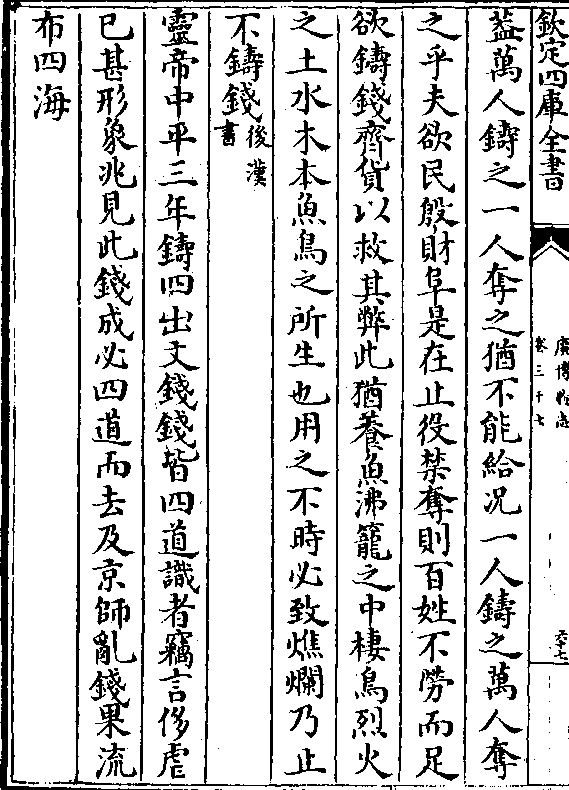 欽定四庫全書
廣博物志
卷三十七
葢萬人鑄之一人奪之猶不能給况一人鑄之萬人奪
之乎夫欲民殷財阜是在止役禁奪則百姓不勞而足
欲鑄錢齊貨以救其弊此猶養魚沸籠之中棲鳥烈火
之上水木本魚鳥之所生也用之不時必致燋爛乃止
不鑄錢後漢書
靈帝中平三年鑄四出文錢錢皆四道識者竊言侈虐
已甚形象兆見此錢成必四道而去及京師亂錢果流
布四海